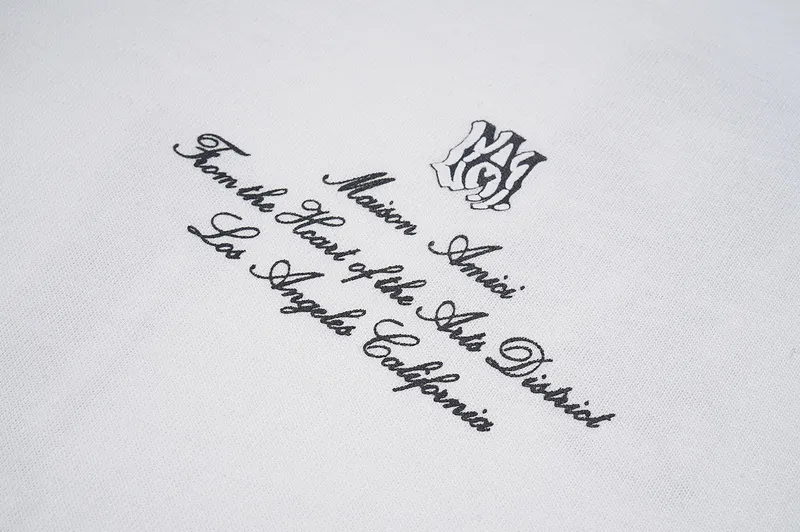 Maison Amici
From the Heart of the Arts District
Los Angeles California